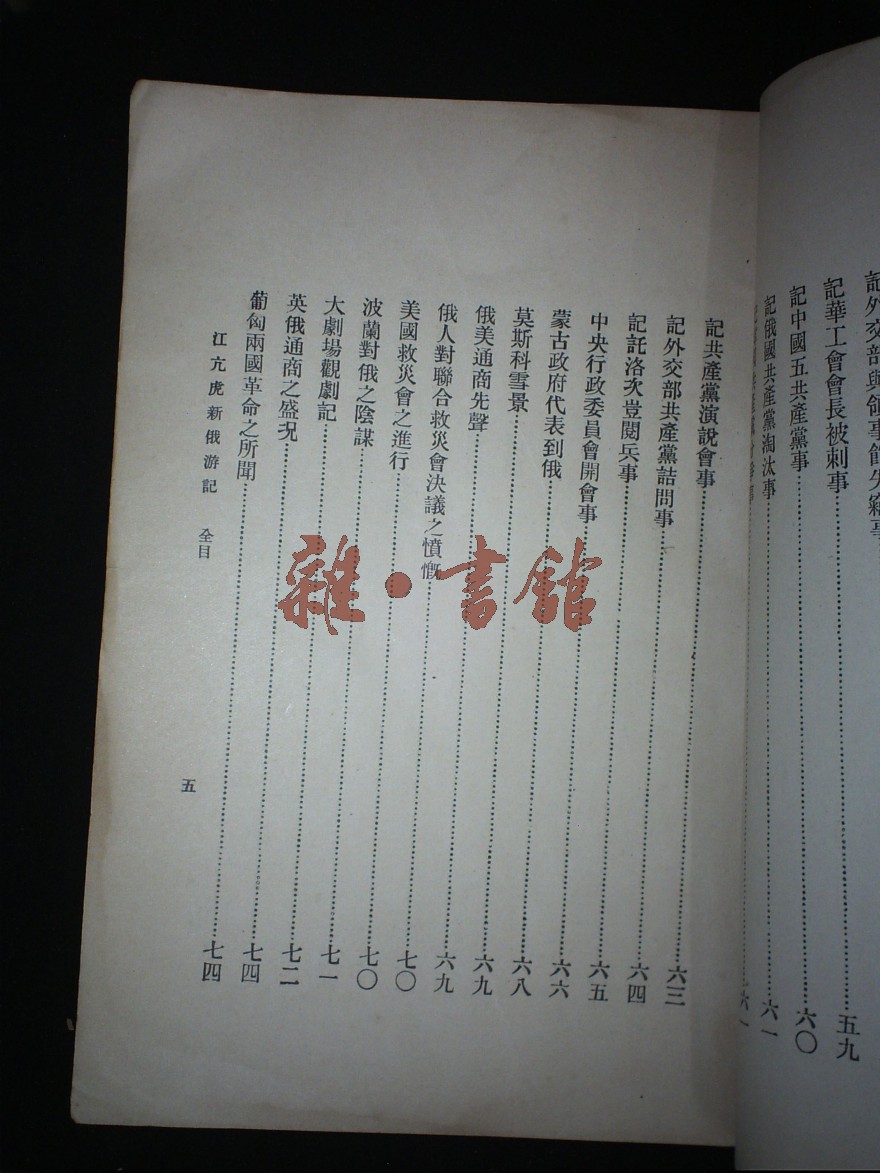 記外交部與領事館失竊事
記華工會會長被刺事 五九
記中國五共產黨事 六〇
記俄國共產黨淘汰事 六一
六一
記共產黨演說會事 六三
記外交部共產黨詰問事 六四
記託洛次豈閱兵事 六五
中央行政委員會開會事 六六
蒙古政府代表到俄 六八
莫斯科雪景 六九
俄美通商先聲 六九
俄人對聯合救災會決議之憤慨 七〇
美國救災會之進行 七〇
波蘭對俄之陰謀 七一
大劇場觀劇記 七二
英俄通商之盛況 七四
葡匈兩國革命之所聞 七四
江亢虎新俄游記 全目 五
雜·書館